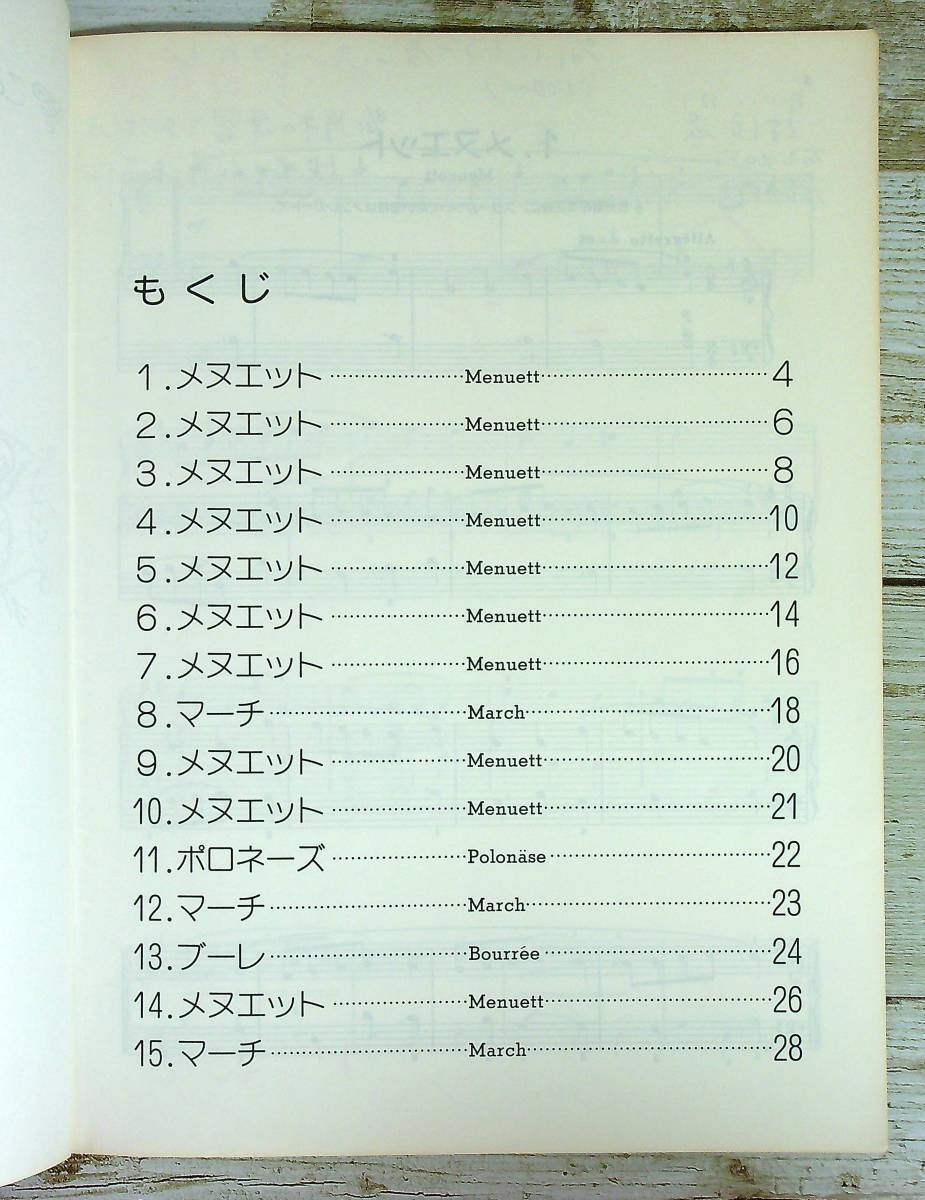 もくじ
1.メヌエット……Menuett……4
2.メヌエット……Menuett……6
3.メヌエット……Menuett……8
4.メヌエット……Menuett……10
5.メヌエット……Menuett……12
6.メヌエット……Menuett……14
7.メヌエット……Menuett……16
8.マーチ……March……18
9.メヌエット……Menuett……20
10.メヌエット……Menuett……21
11.ポロネーズ……Polonäse……22
12.マーチ……March……23
13.ブーレ……Bourrée……24
14.メヌエット……Menuett……26
15.マーチ……March……28